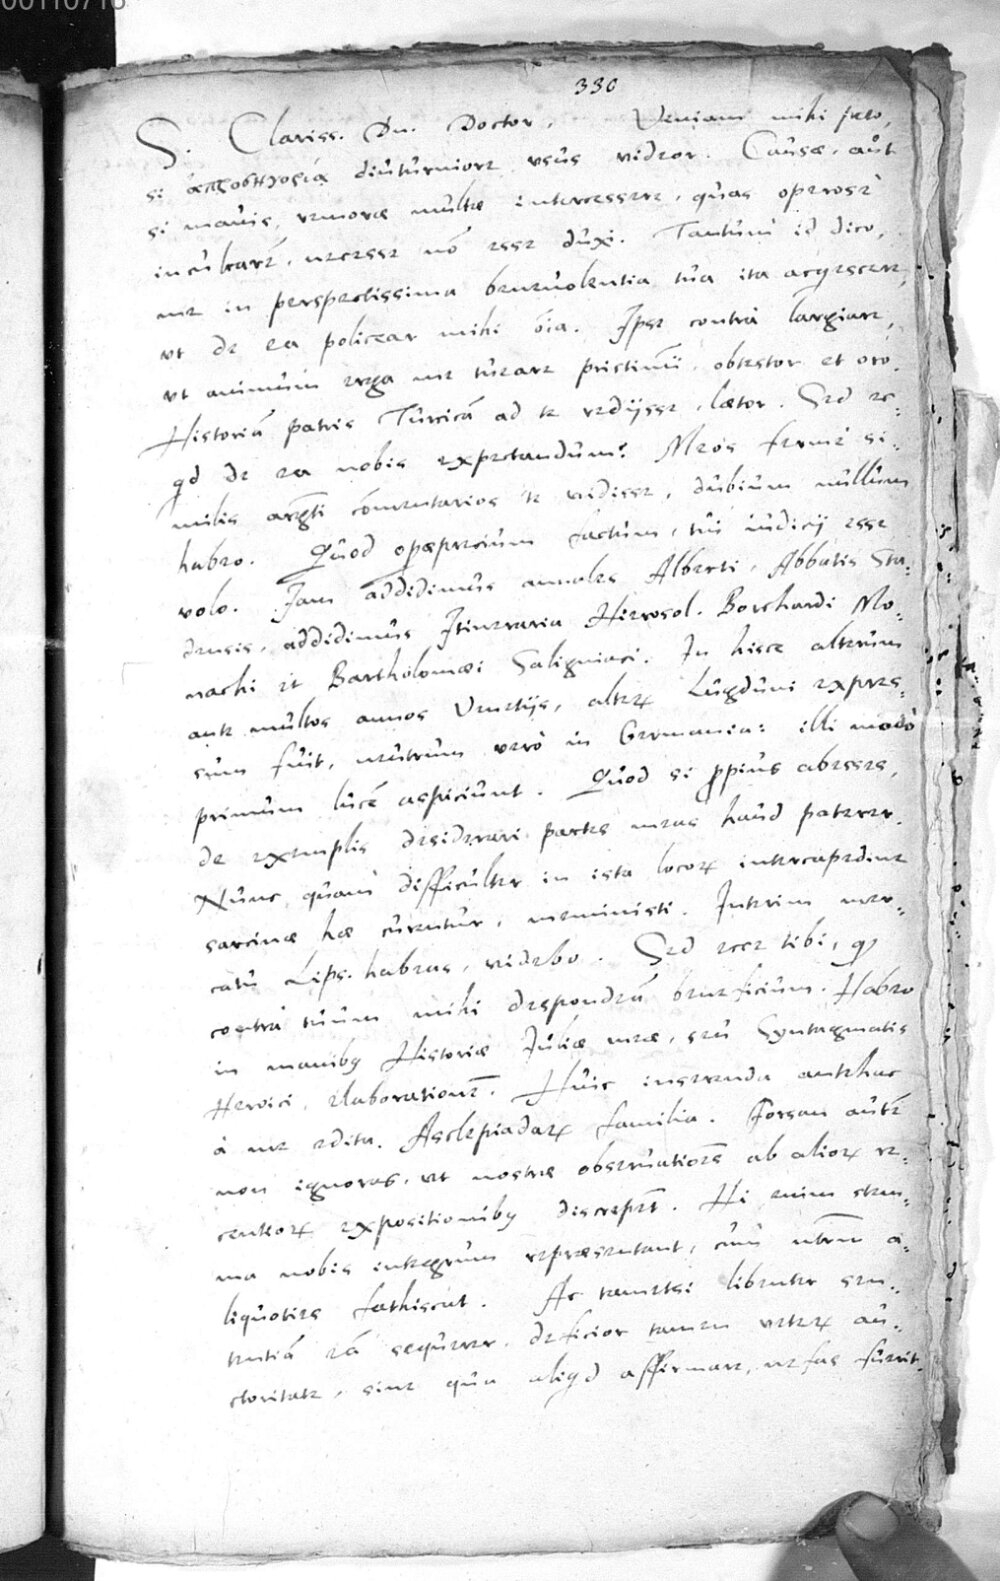 00110716
330
S. Clariss. Dn. Doctor. Veniam mihi fero,
si diuturniore usus videor. Causæ, aut
si mavis, remoræ multæ intercessere, quas operosè
inculcare, necesse nō esse duxi. Tantum id dico,
me in perspectissima beneuolentia tua ita acquiescere,
vt de ea policear mihi oīa. Ipse contrà largiare,
vt animum erga me tueare pristinū, obtestor et oro.
Historiā patris Turcicā ad te redijsse, lætor. Sed ec-
qd de ea nobis expectandum? Meos fermè si-
milis argti cōmentarios te vidisse, dubium nullum
habeo. Quod operæprecium factum, tui iudicij esse
volo. Iam addidimus annales Alberti, Abbatis Sta-
densis, addidimus Itineraria Hierosol. Borchardi Mo-
nachi et Bartholomæi Saligniaci. In hisce alterum
ante multos annos Venetijs, alterū Lugduni expres-
sum fuit, neutrum verò in Germania: illi modò
primum lucē aspiciunt. Quod si ꝓpius abesses,
de exemplis desiderari partes meas haud paterer.
Nunc, quam difficulter in ista locoꝝ intercapedine
sarcinæ hæ curentur, meministi. Interim mer-
catu Lips. habeas, videbo. Sed ecce tibi, qd
contrà tuum mihi despondeā beneficium. Habeo
in manibꝯ Historiæ Iuliæ meæ, seu Syntagmatis
Heroici, elaborationē. Huic inserenda antehac
à me edita Asclepiadaꝝ familia. Forsan autē
non ignoras, vt nostræ obseruationes ab alioꝝ re-
centioꝝ expositionibꝯ discrepēt. Hi enim stem-
ma nobis integrum repræsentant, cum a-
liquoties fathiscat. Ac tametsi libenter sen-
tentiā eā sequerer, deficior tamen veterꝝ au-
ctoritate, sine qua aliqd affirmare, nefas fuerit.